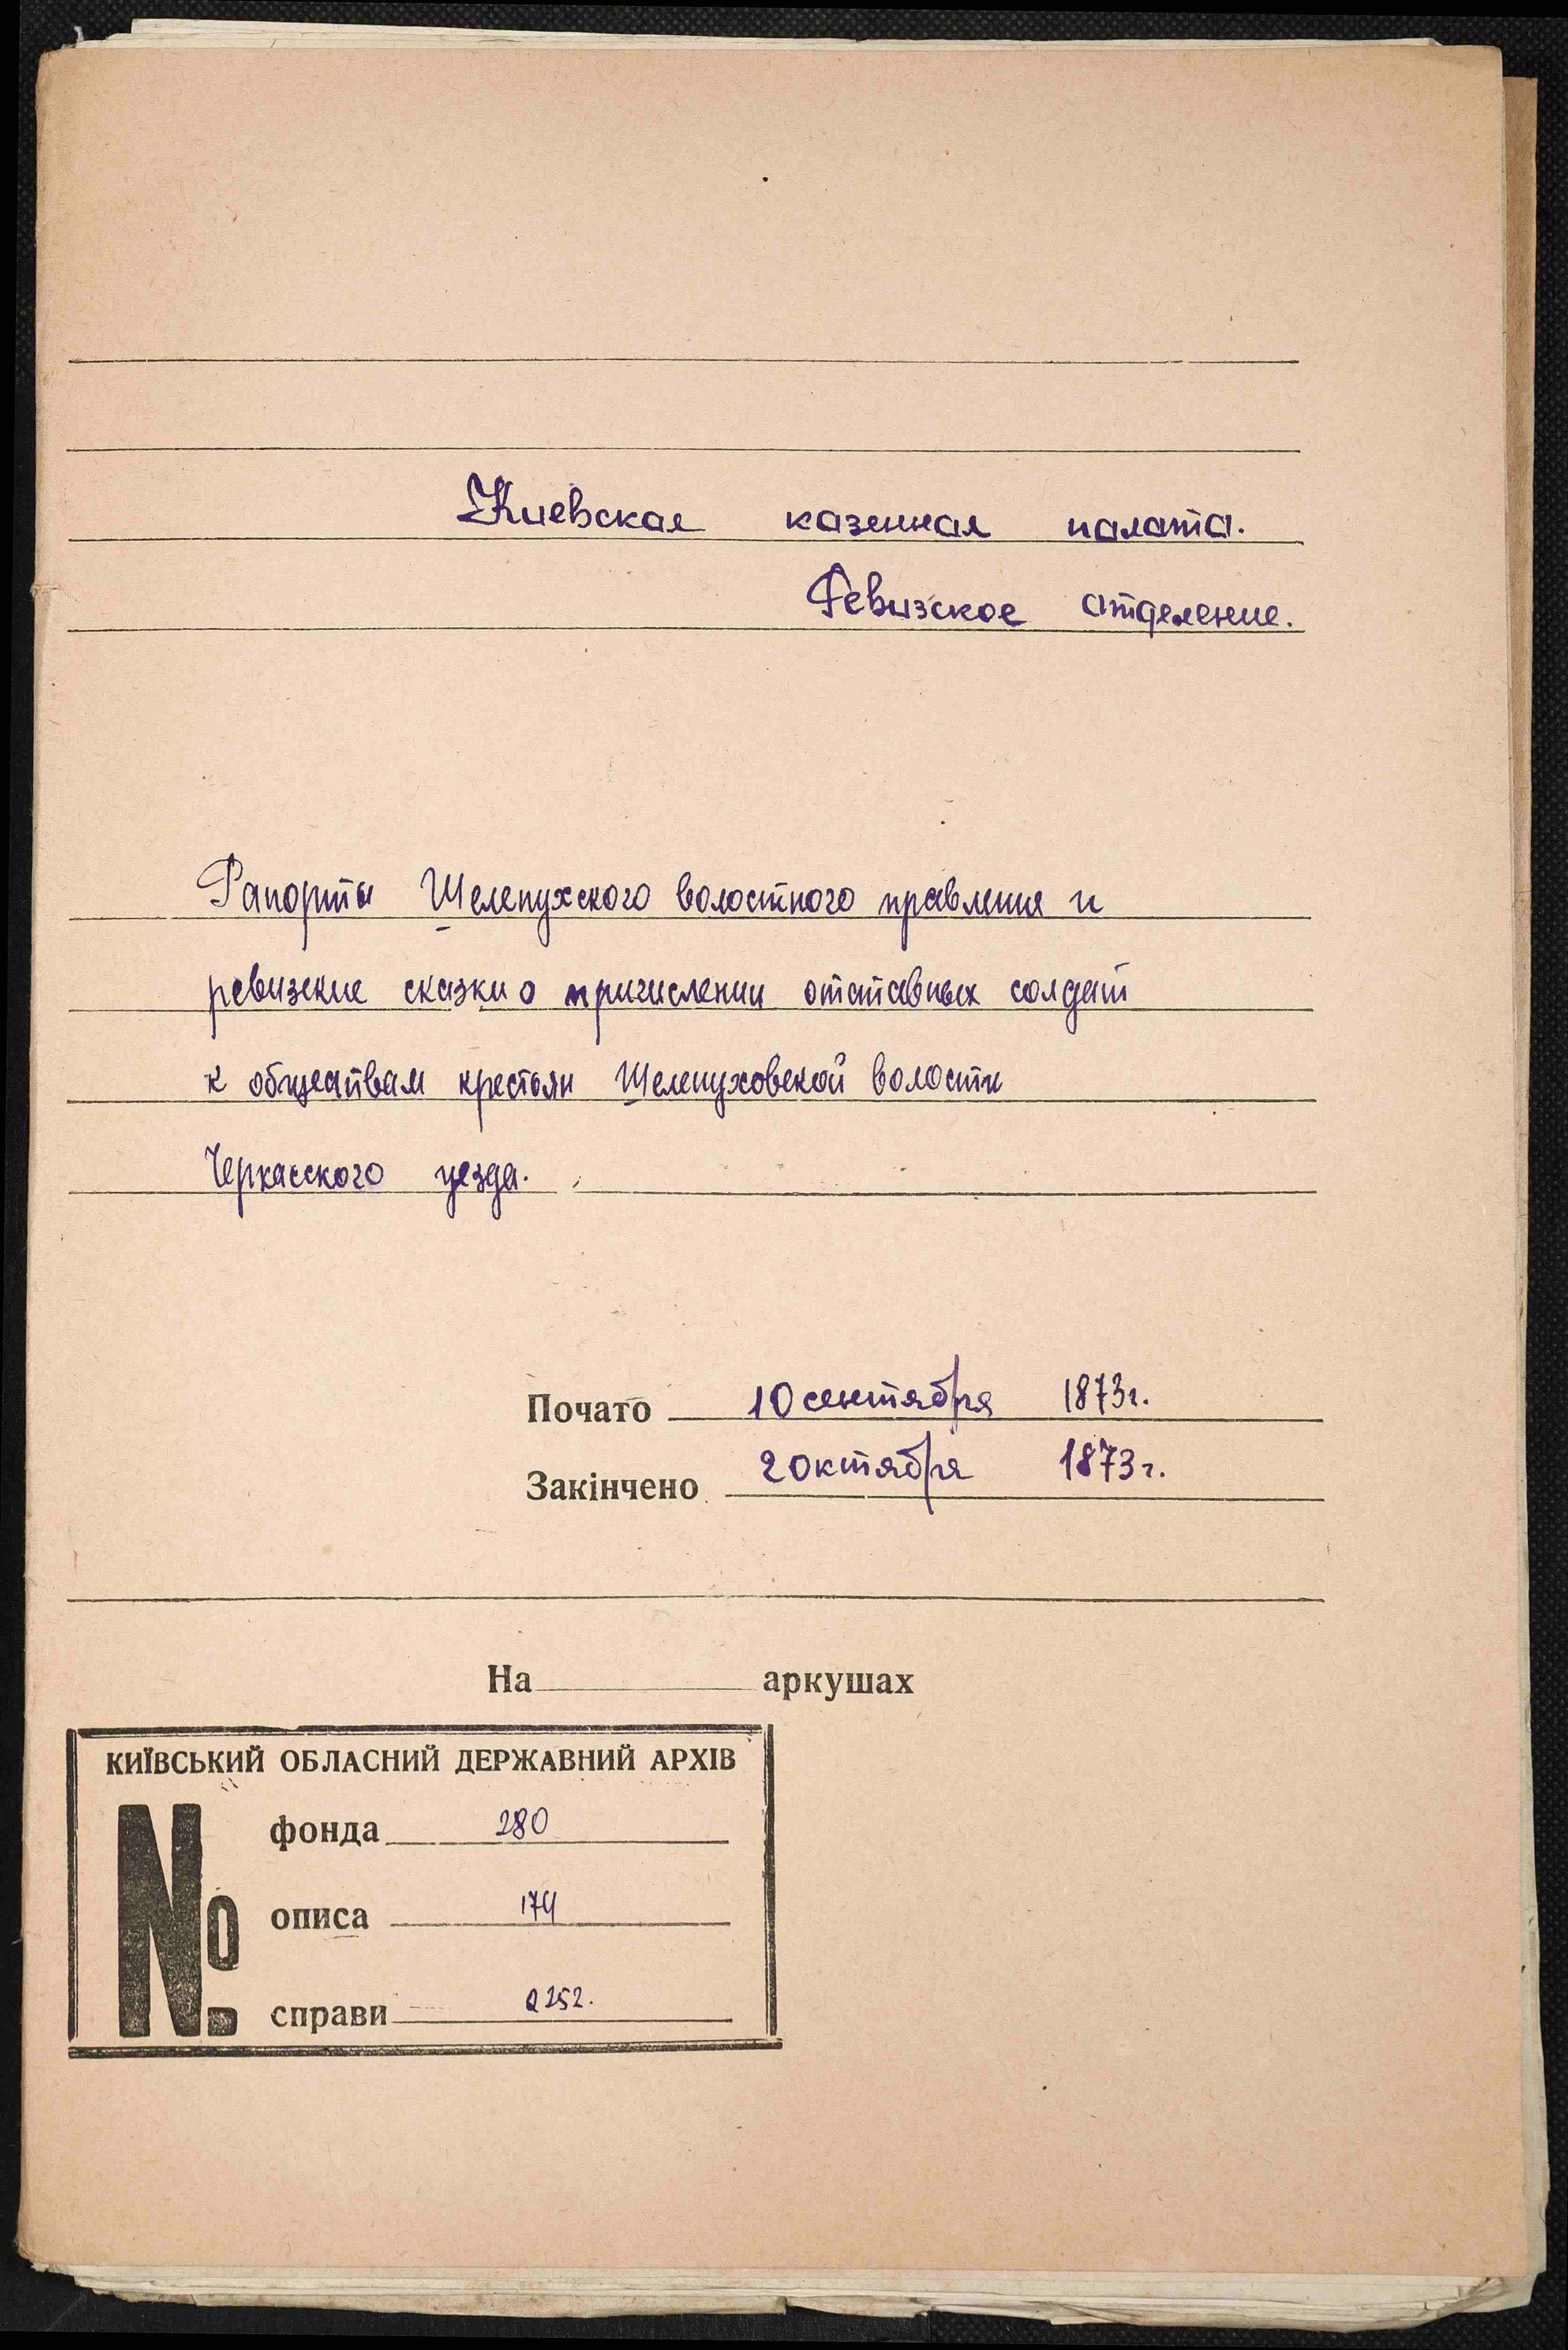 Киевская казенная палата.
Ревизское отделение.
Рапорты Шелепухского волостного правления и
ревизские сказки о причислении отставных солдат
к обществам крестьян Шелепуховской волости
Черкасского уезда.
Почато 10 сентября 1873 г.
Закінчено 2 октября 1873 г.
На аркушах
КИЇВСЬКИЙ ОБЛАСНИЙ ДЕРЖАВНИЙ АРХІВ
№
фонда 280
описа 174
справи 2252.